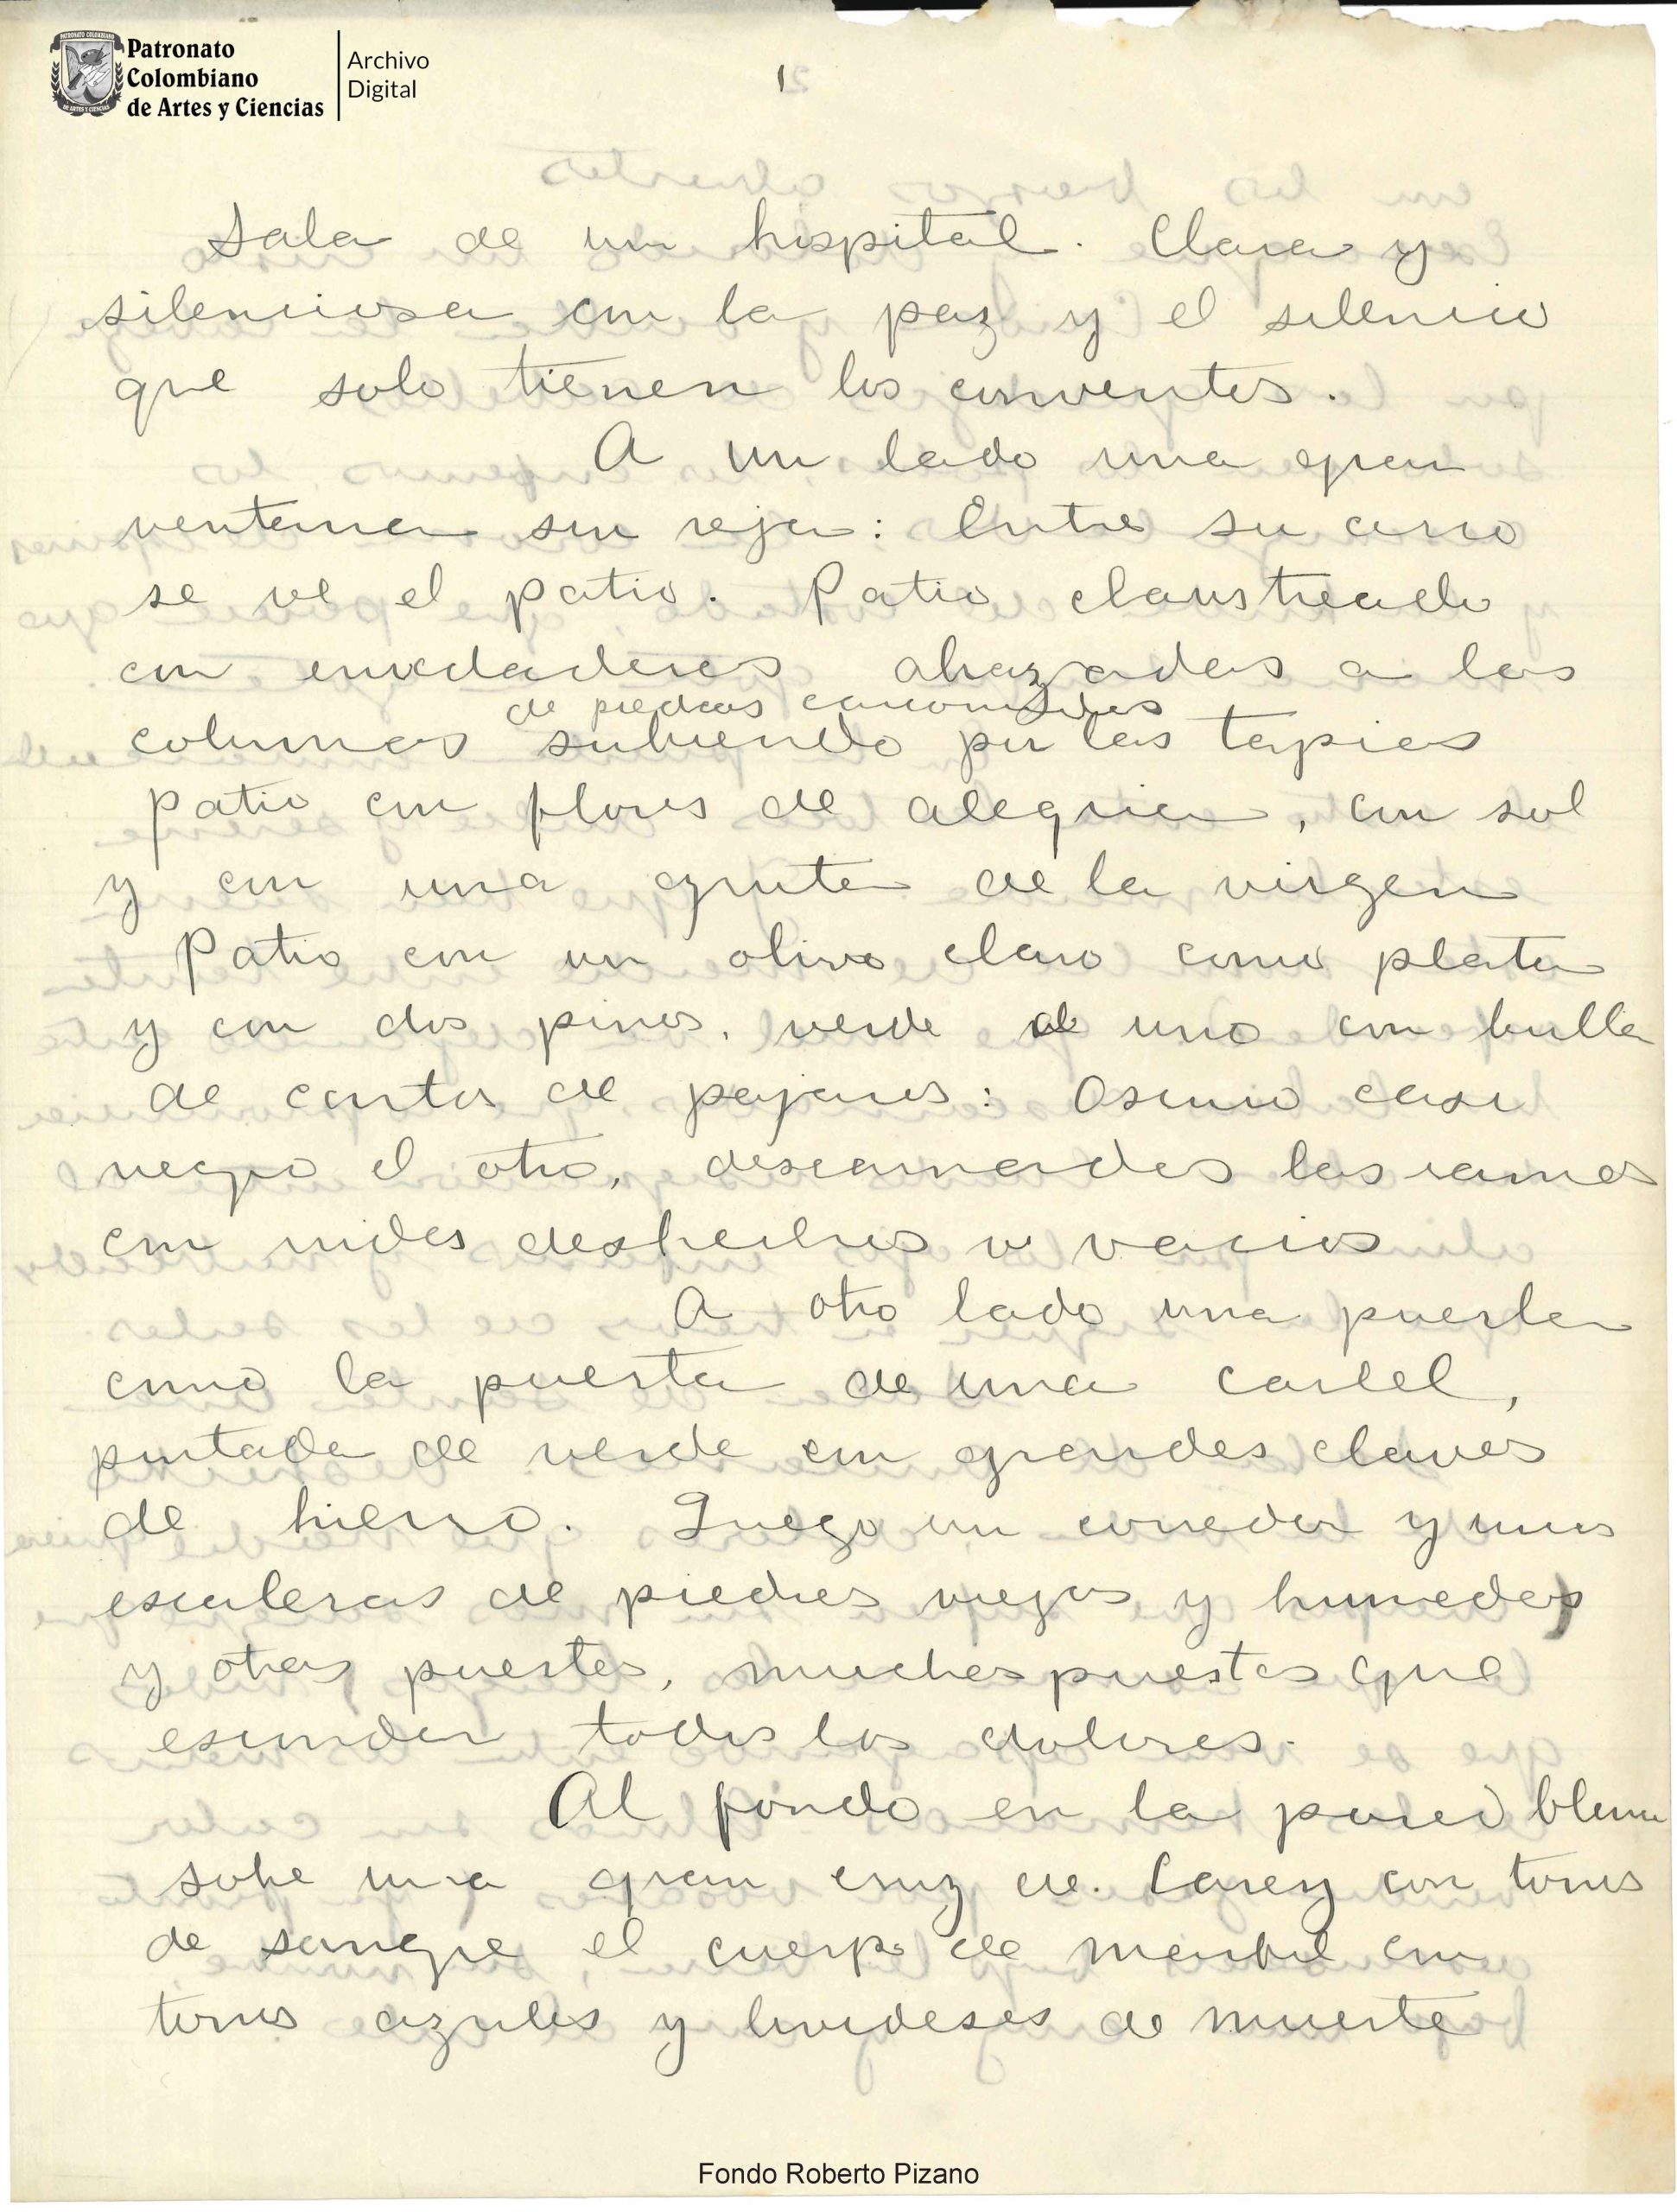 Patronato
Colombiano
de Artes y Ciencias
Archivo
Digital
1
Sala de un hospital. Clara y
silenciosa con la paz y el silencio
que solo tienen los conventos.
A un lado una gran
ventana sin reja: Entre su arco
se ve el patio. Patio claustreado
con enredaderas abrazadas a las
de piedras carcomidas
columnas subiendo por las tapias
patio con flores de alegria, con sol
y con una gruta de la virgen
Patio con un olivo claro como plata
y con dos pinos, verde el uno con bulla
de cantos de pajaros: Oscuro casi
negro el otro, descarnadas las ramas
con nidos deshechos y vacios
A otro lado una puerta
como la puerta de una carcel,
pintada de verde con grandes clavos
de hierro. Luego un corredor y unas
escaleras de piedras viejas y humedas
y otras puertas, muchas puertas que
esconden todos los dolores.
Al fondo en la pared blanca
sobe una gran cruz de Carey con tonos
de sangre el cuerpo de marfil con
tonos azules y livideses de muerte
Fondo Roberto Pizano